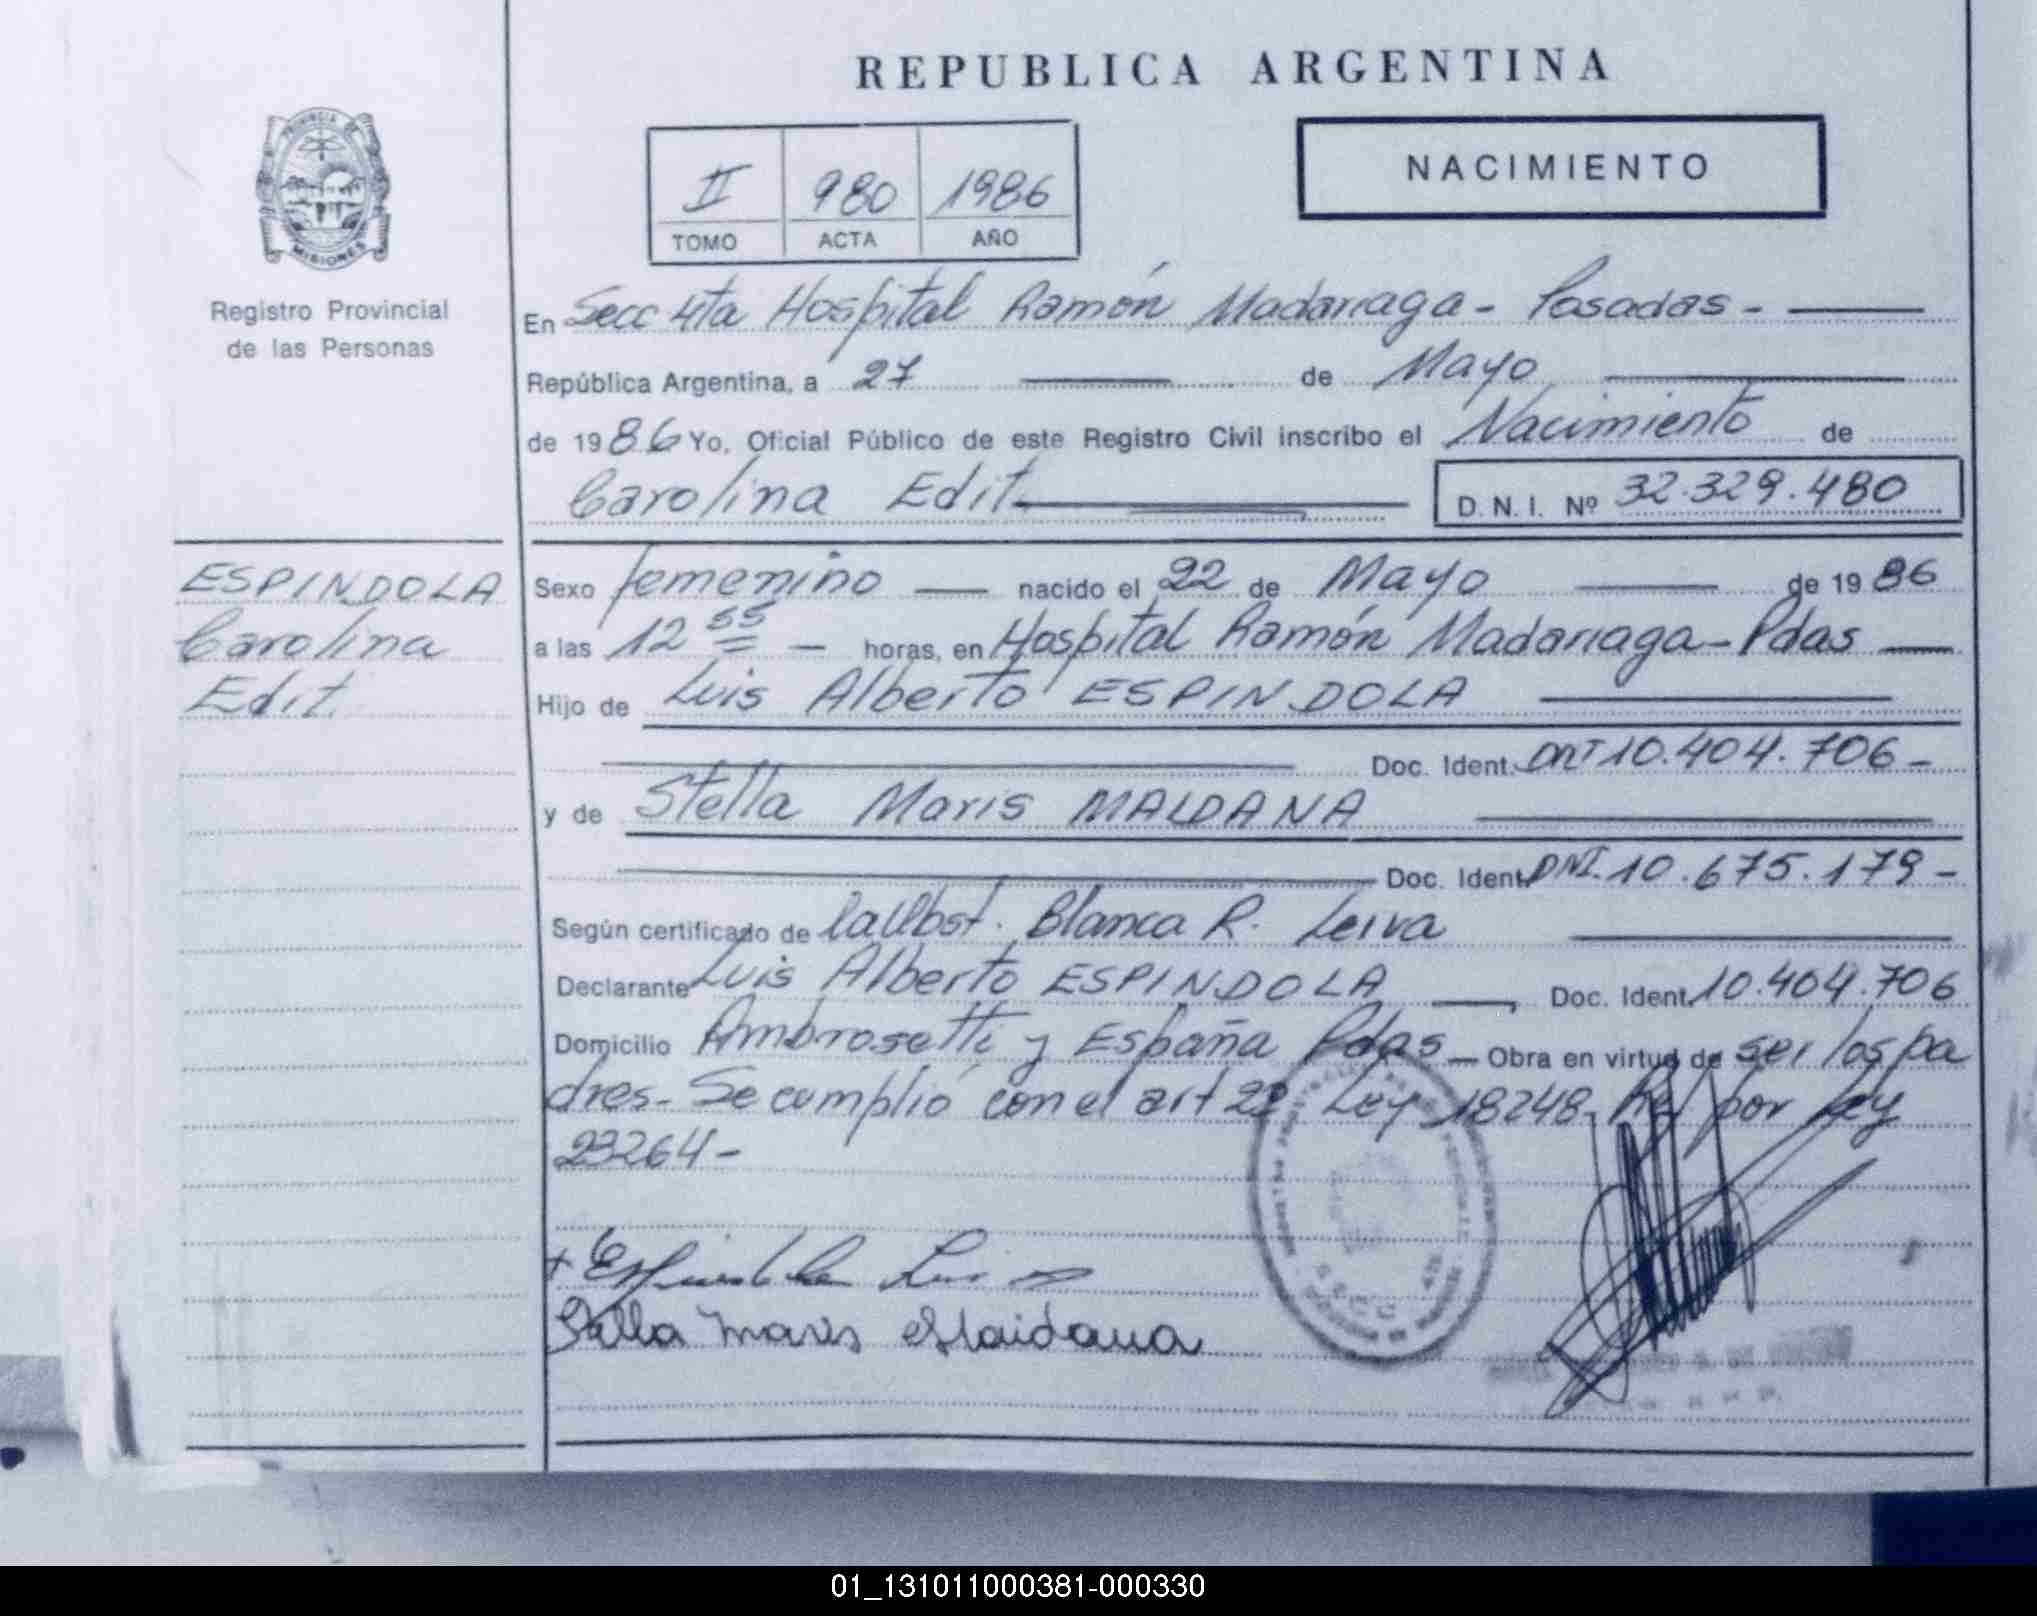 REPUBLICA ARGENTINA
PROVINCIA DE
MISIONES
Registro Provincial
de las Personas
II 980 1986
TOMO ACTA AÑO
NACIMIENTO
En Secc 4ta Hospital Ramón Madariaga - Posadas -
República Argentina, a 27 de Mayo
de 1986 Yo, Oficial Público de este Registro Civil inscribo el Nacimiento de
Carolina Edit D. N. I. Nº 32.329.480
ESPINDOLA
Carolina
Edit.
Sexo femenino nacido el 22 de Mayo de 1986
a las 12 55 horas, en Hospital Ramón Madariaga - Pdas
Hijo de Luis Alberto ESPINDOLA
Doc. Ident. DNI 10.404.706 -
y de Stella Maris MAIDANA
Doc. Ident. DNI. 10.675.179 -
Según certificado de Blanca R. Leiva
Declarante Luis Alberto ESPINDOLA Doc. Ident. 10.404.706
Domicilio Ambrosetti y España Pdas - Obra en virtud de ser los pa
dres - Se cumplió con el art 22 Ley 18248 - por Ley
23264 -
+ Espindola Luis
Stella Maris Maidana
01_131011000381-000330